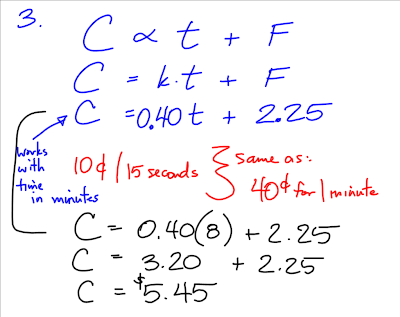 3.
C ∝ t + F
C = k·t + F
C = 0.40t + 2.25
works
with
time
in minutes
10¢ / 15 seconds } same as:
40¢ for 1 minute
C = 0.40(8) + 2.25
C = 3.20 + 2.25
C = $5.45